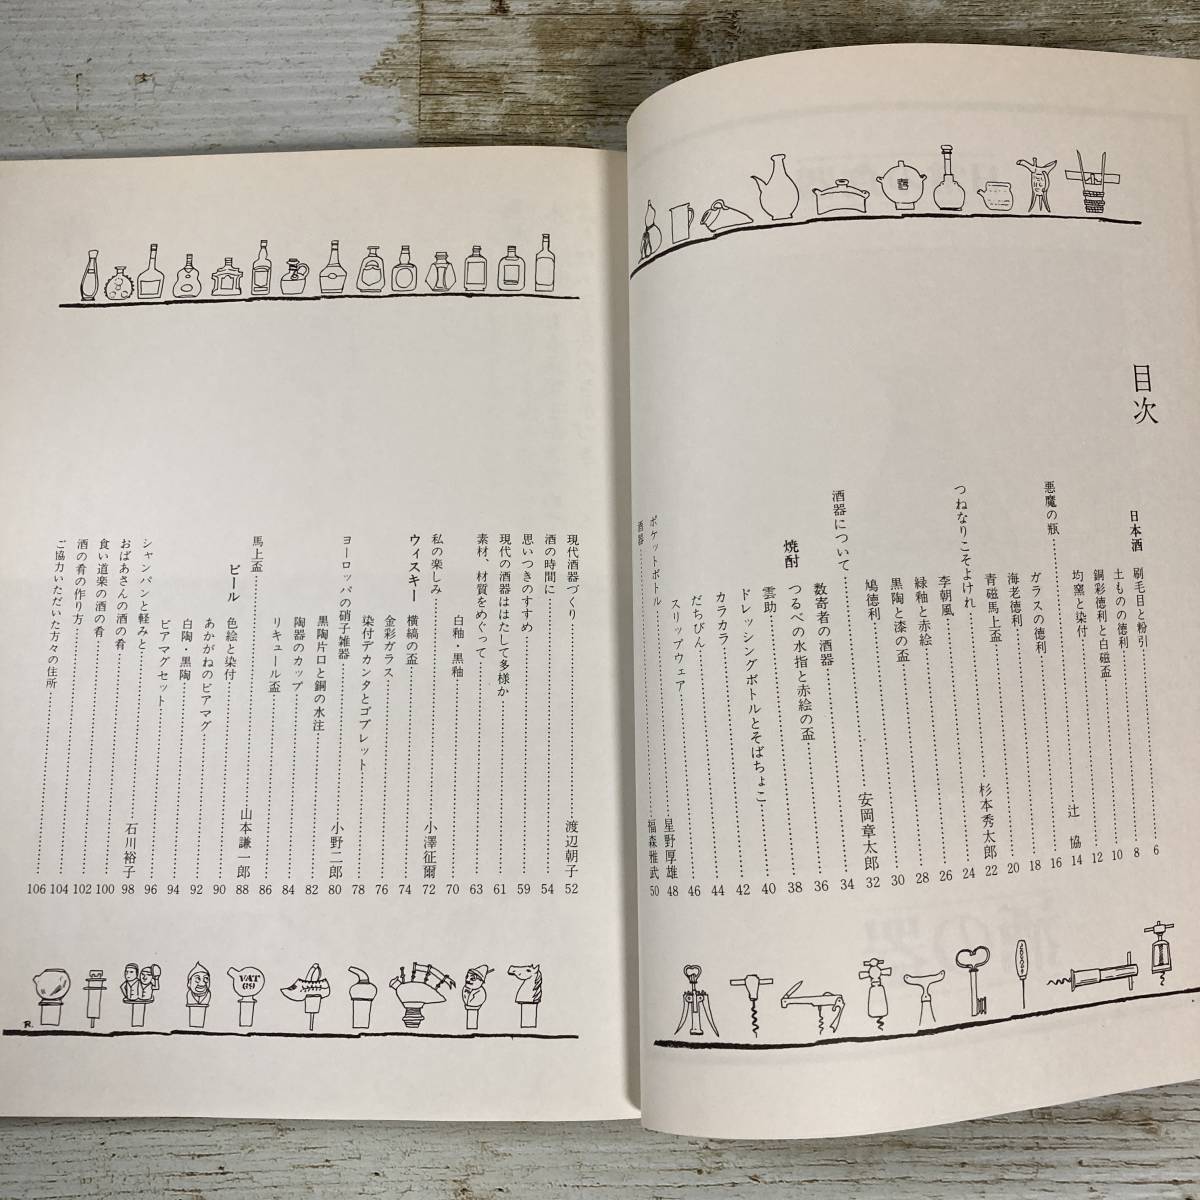 目次
日本酒 刷毛目と粉引 6
土ものの徳利 8
銅彩徳利と白磁盃 10
均窯と染付 12
悪魔の瓶 辻 協 14
ガラスの徳利 16
海老徳利 18
青磁馬上盃 20
つねなりこそよけれ 杉本秀太郎 22
李朝風 24
緑釉と赤絵 26
黒陶と漆の盃 28
鳩徳利 30
酒器について 安岡章太郎 32
数寄者の酒器 34
焼酎 つるべの水指と赤絵の盃 36
雲助 38
ドレッシングボトルとそばちょこ 40
カラカラ 42
だらびん 44
スリップウェア 46
ポケットボトル 星野厚雄 48
酒器 福森雅武 50
現代酒器づくり 渡辺朝子 52
酒の時間に 54
思いつきのすすめ 59
現代の酒器ははたして多様か 61
素材、材質をめぐって 63
白釉・黒釉 70
私の楽しみ 小澤征爾 72
ウィスキー 横縞の盃 74
金彩ガラス 76
染付デカンタとゴブレット 78
ヨーロッパの硝子雑器 小野二郎 80
黒陶片口と銅の水注 82
陶器のカップ 84
リキュール盃 86
馬上盃 山本謙一郎 88
ビール 色絵と染付 90
あかがねのビアマグ 92
白陶・黒陶 94
ビアマグセット 96
シャンパンと軽みと 石川裕子 98
おばあさんの酒の肴 100
食い道楽の酒の肴 102
酒の肴の作り方 104
ご協力いただいた方々の住所 106
VAT 69
R.